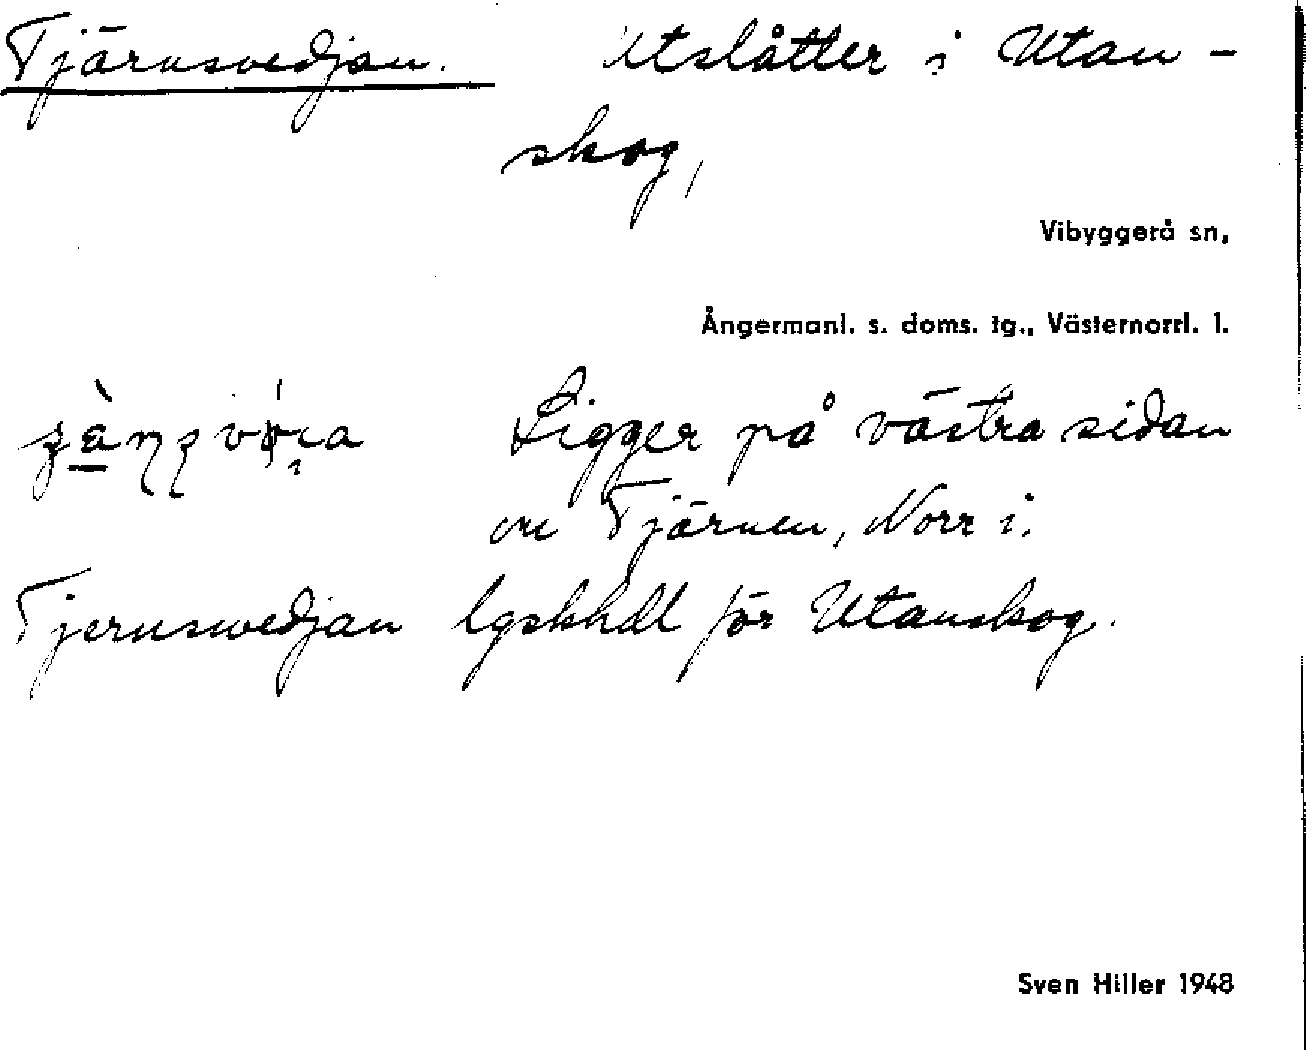 Tjärnsvedjan. Utslåtter i Utan-
skog,
Vibyggerå sn,
Ångermanl. s. doms. tg., Västernorrl. l.
Ligger på västra sidan
om Tjärnen, Norr i.
Tjernswedjan lgskhdl för Utanskog.
Sven Hiller 1948